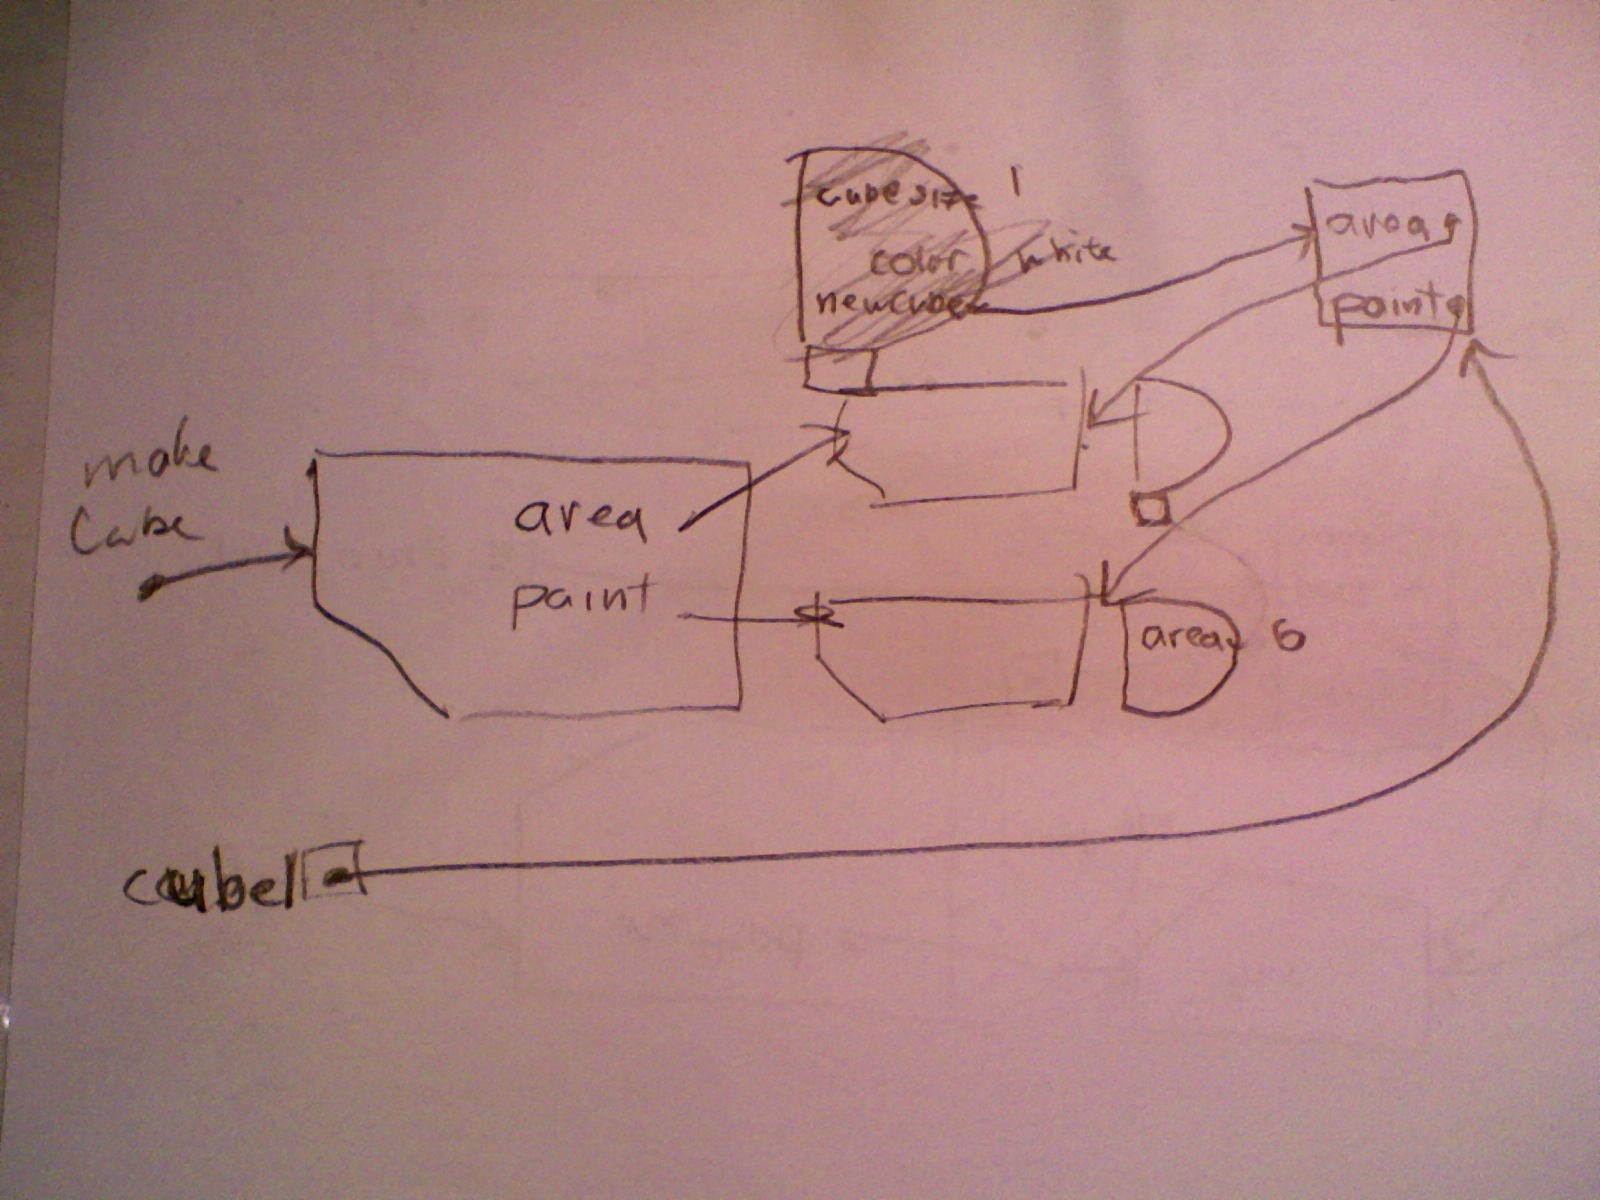 cubesize 1
color white
newcube
area
paint
make
Cube
area
paint
area 6
cube1